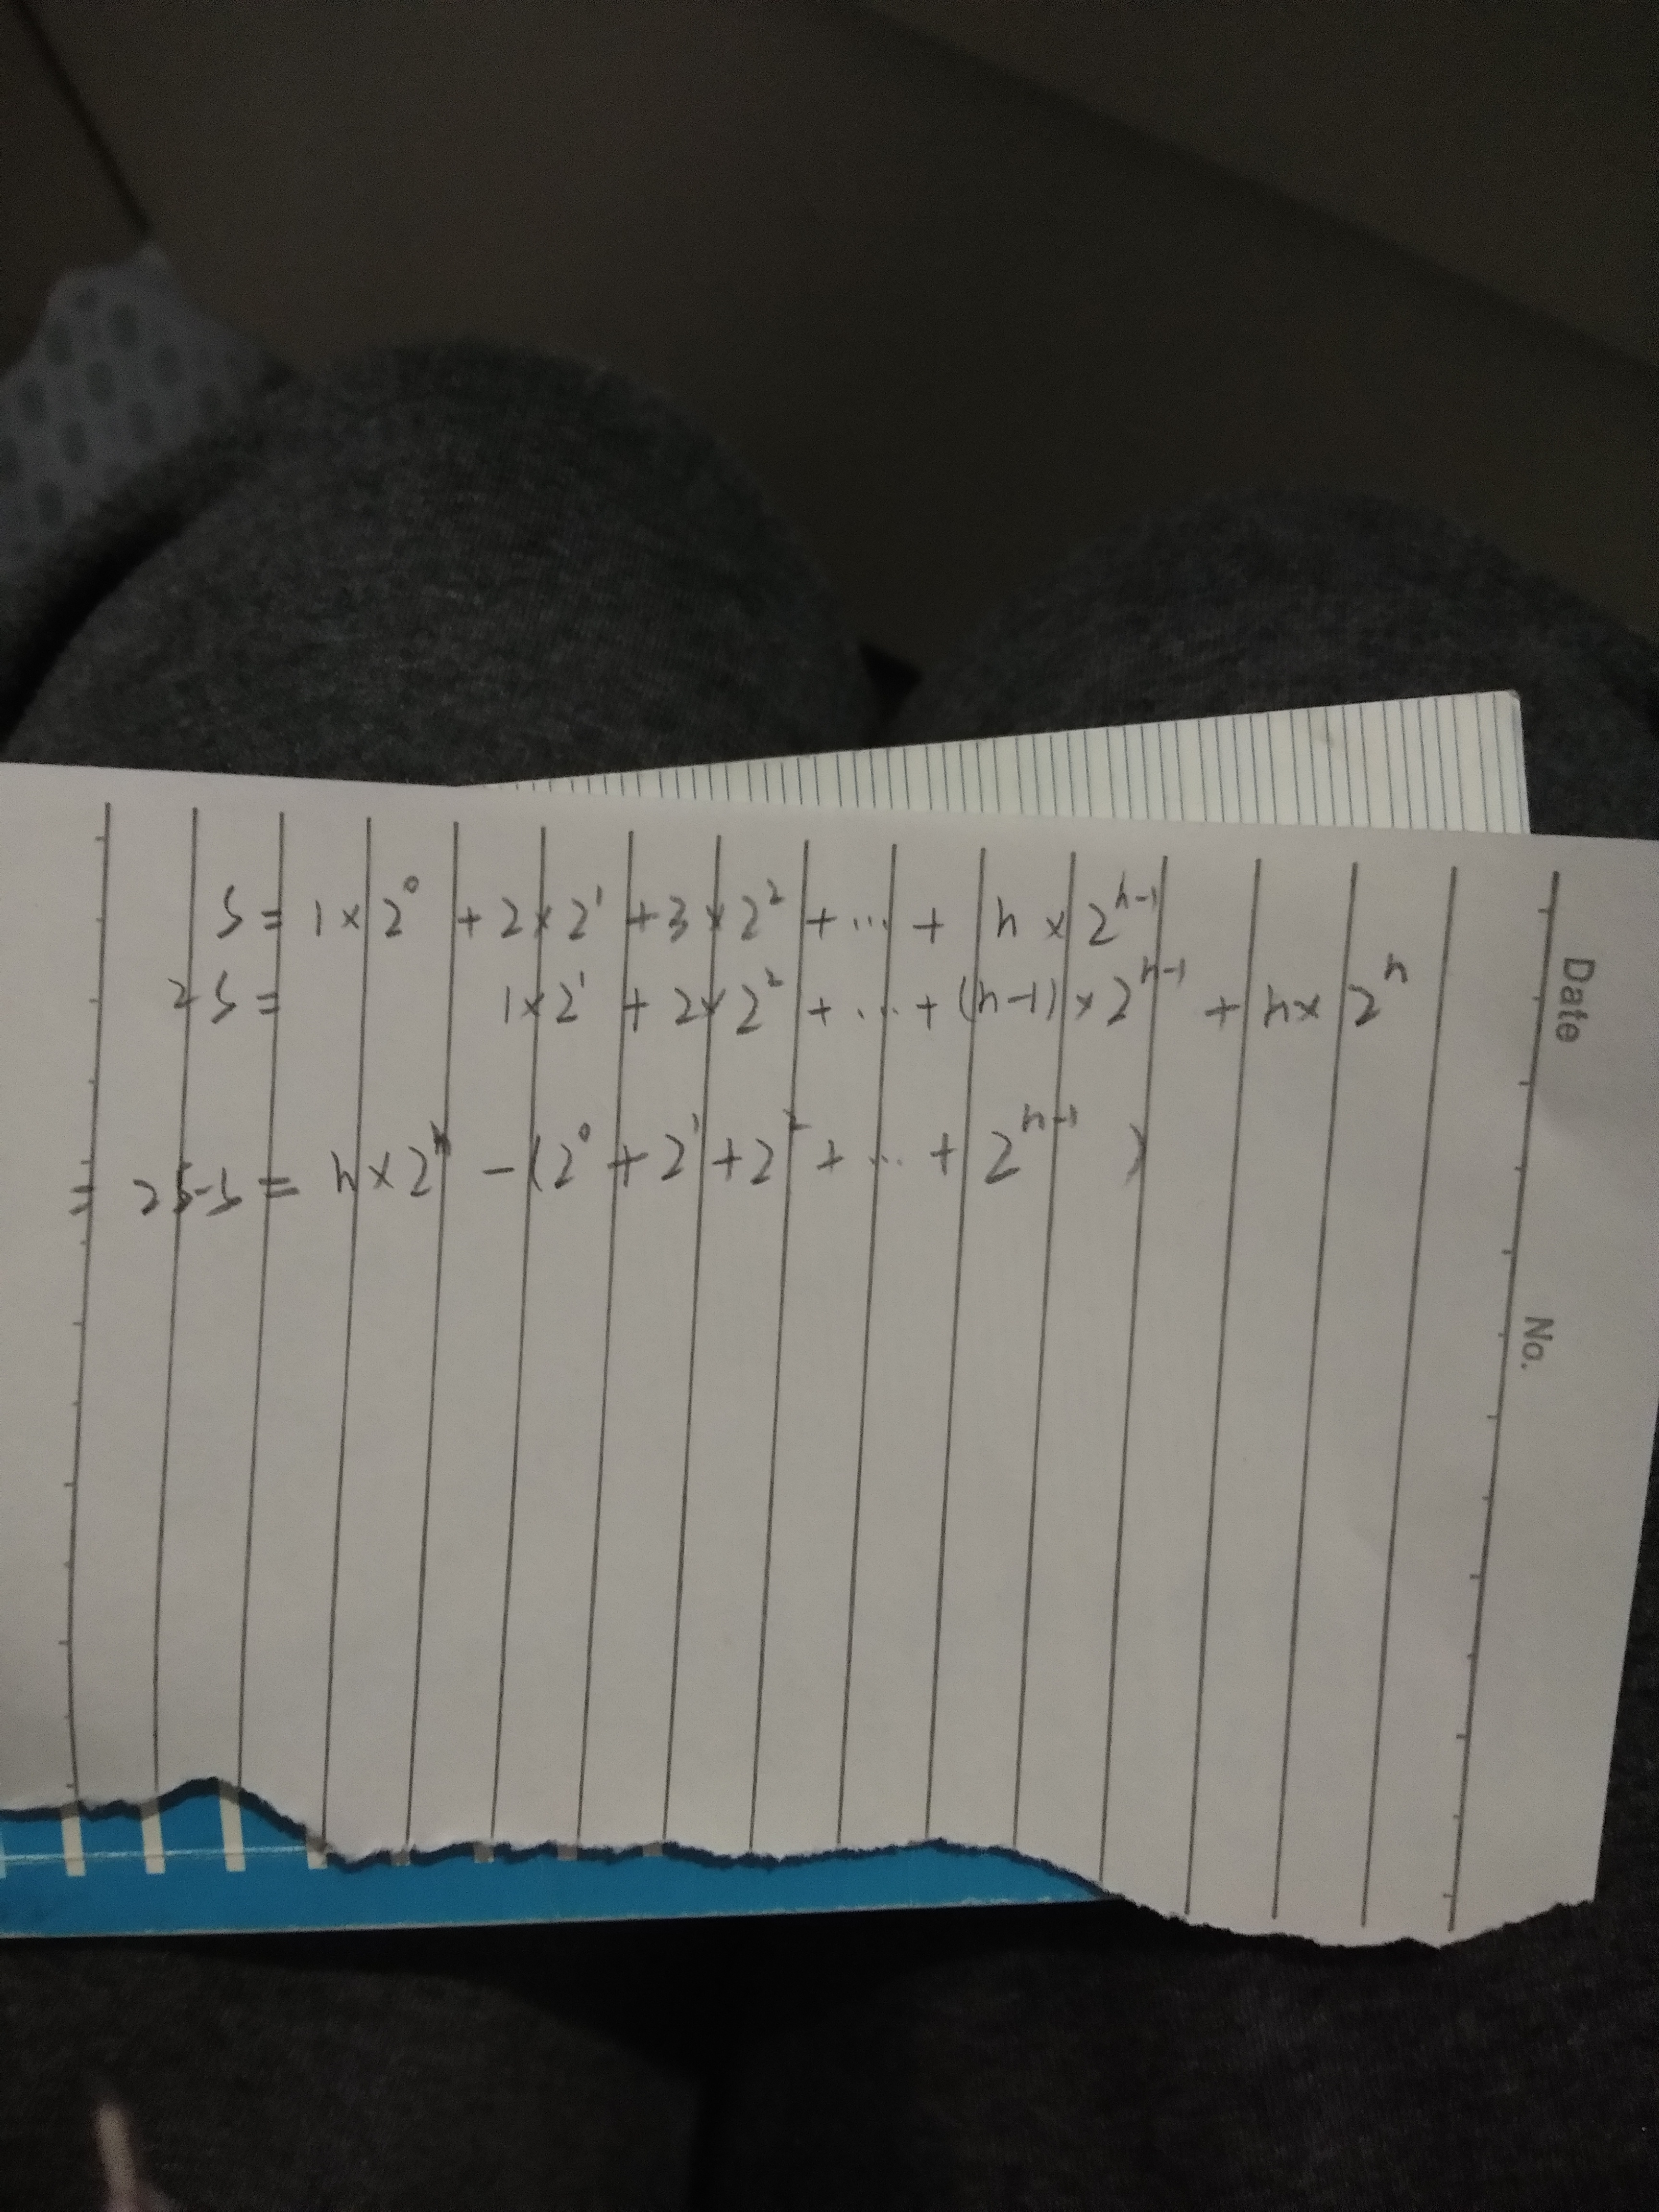 S = 1 × 2⁰ + 2 × 2¹ + 3 × 2² + ... + n × 2ⁿ⁻¹
2S = 1 × 2¹ + 2 × 2² + ... + (n-1) × 2ⁿ⁻¹ + n × 2ⁿ
= 2S-S = n × 2ⁿ - (2⁰ + 2¹ + 2² + ... + 2ⁿ⁻¹ )
Date
No.